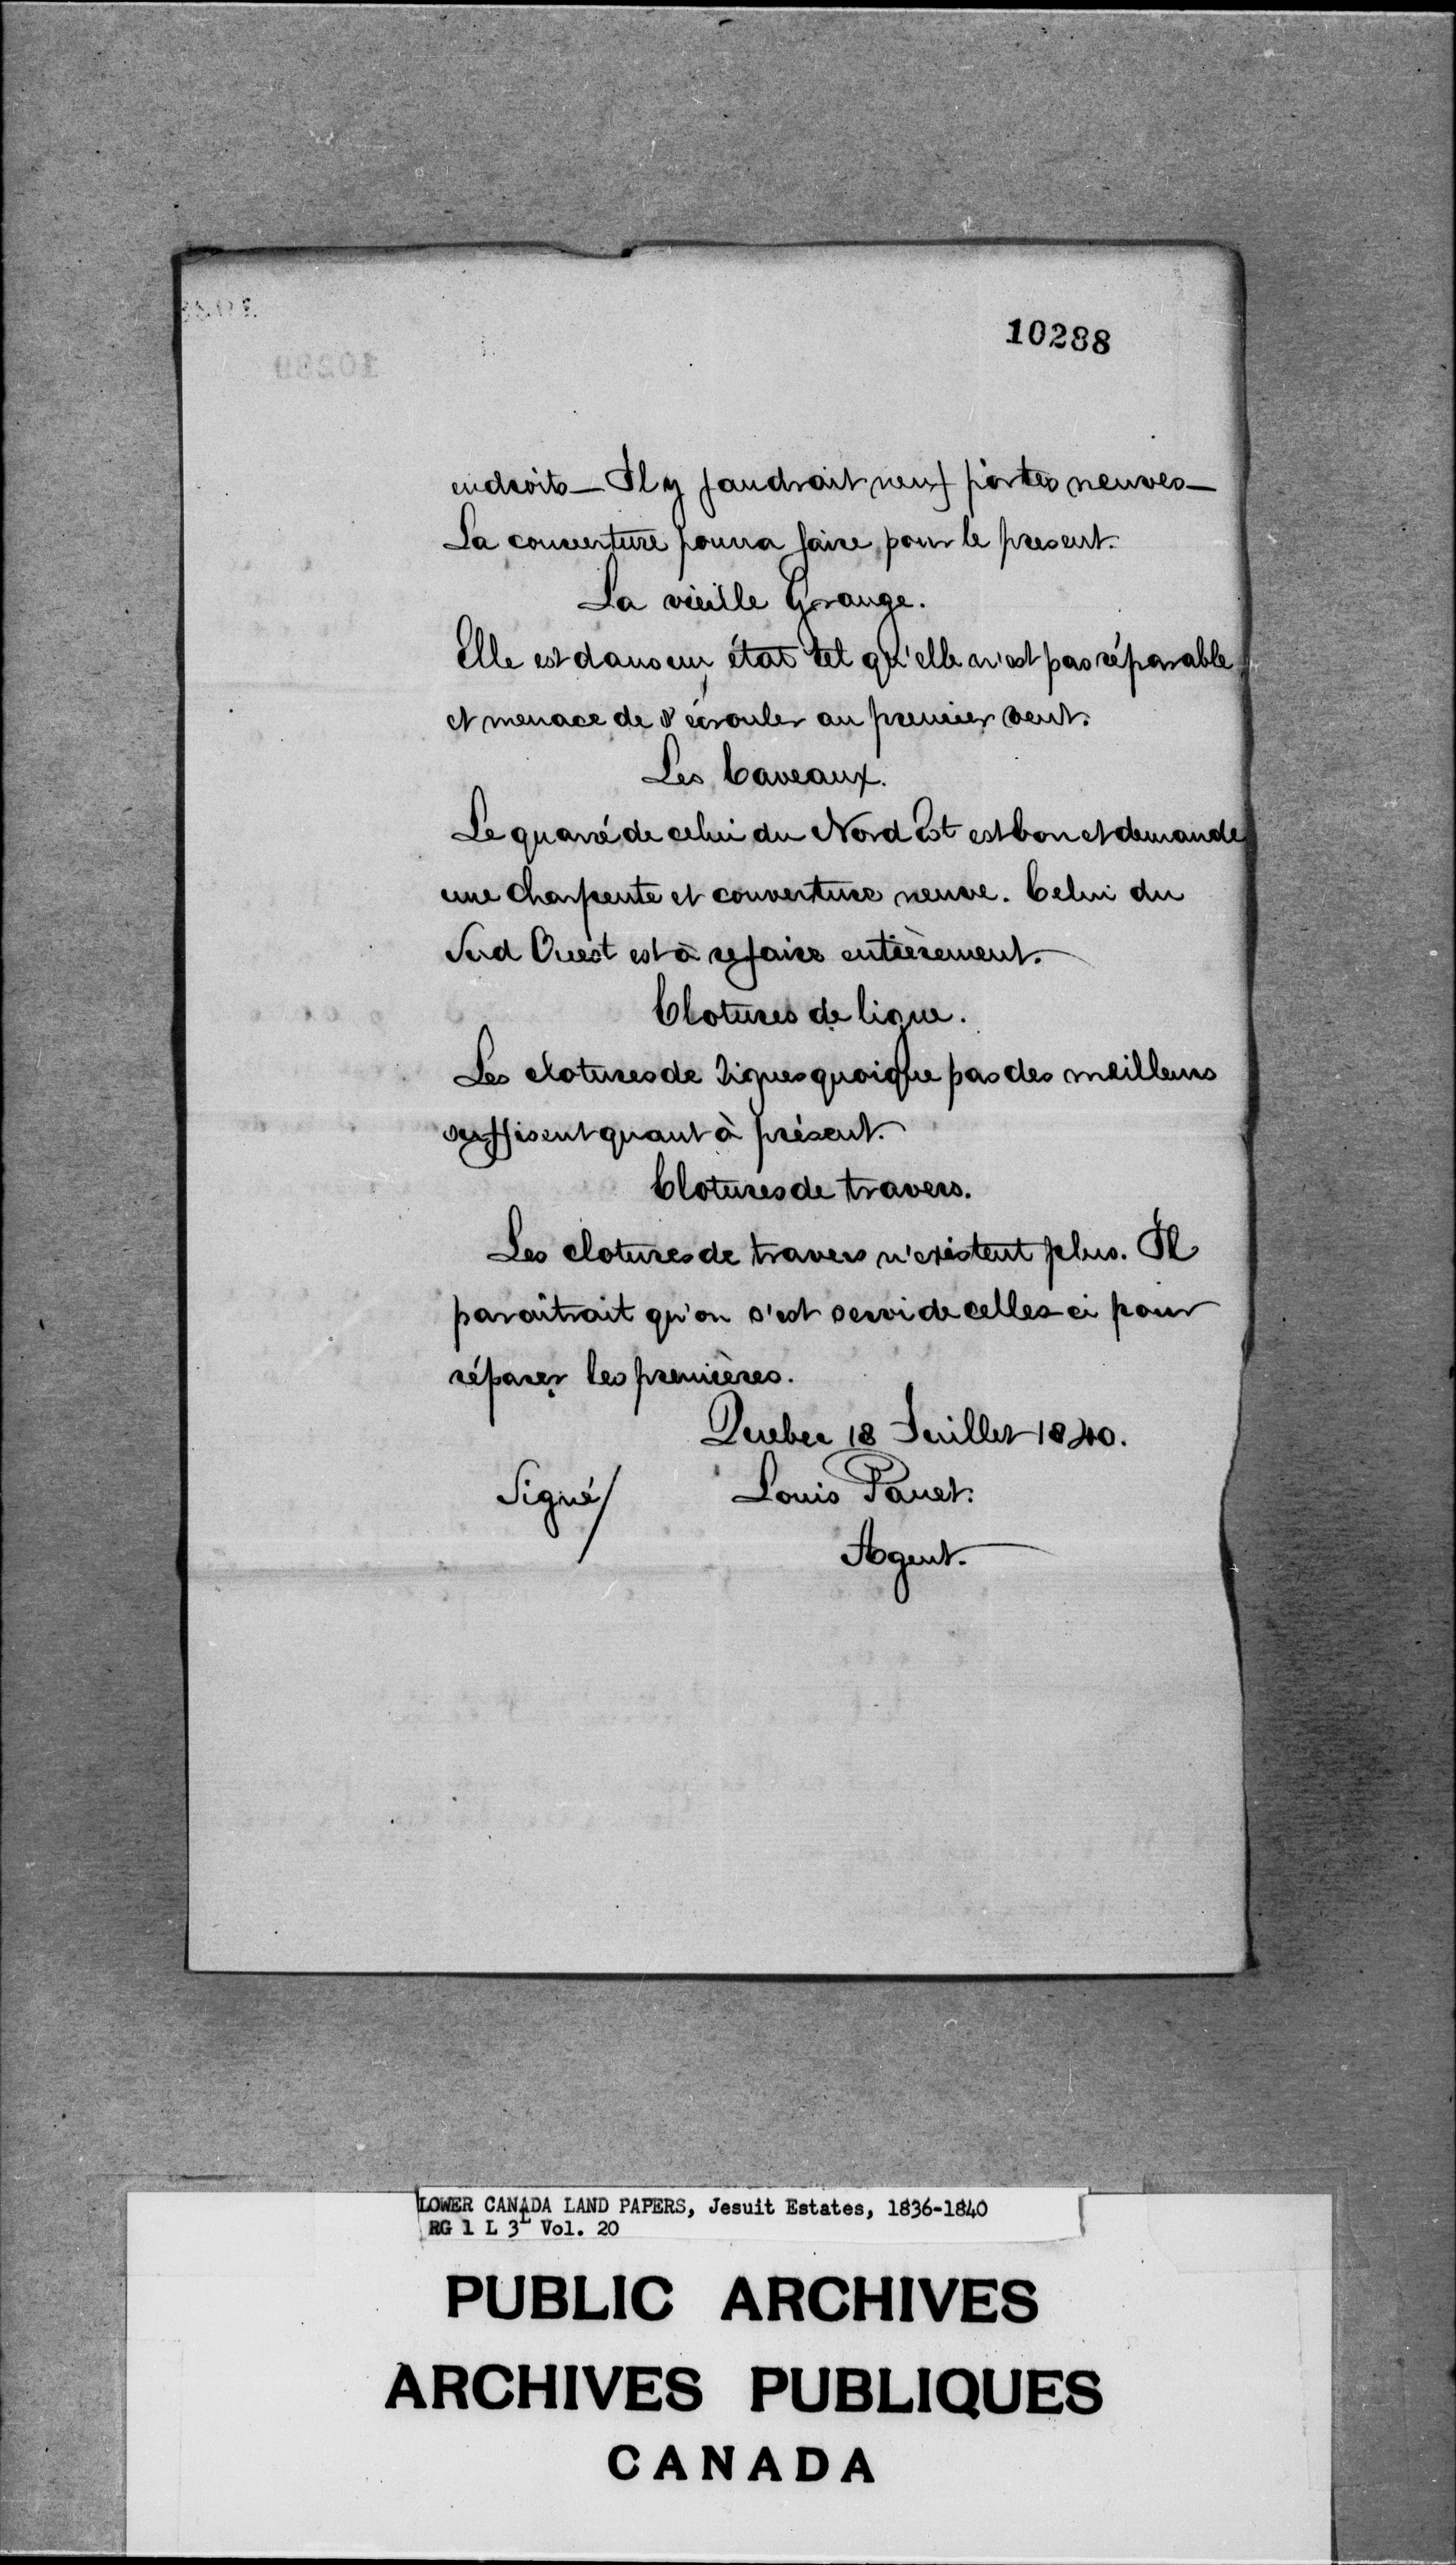 10288
endroits — Il y faudrait neuf portes neuves —
La couverture pourra faire pour le present.
La vieille Grange.
Elle est dans un état tel qu'elle n'est pas réparable
et menace de s'écrouler au premier vent.
Les Caveaux.
Le quarré de celui du Nord Est est bon et demande
une charpente et couverture neuve. Celui du
Sud Ouest est à refaire entièrement.
Clotures de ligne.
Les clotures de lignes quoique pas des meilleurs
suffisent quant à présent.
Clotures de travers.
Les clotures de travers n'existent plus. Il
paraîtrait qu'on s'est servi de celles ci pour
réparer les premières.
Quebec 18 Juillet 1840.
Signé / Louis Panet.
Agent.
LOWER CANADA LAND PAPERS, Jesuit Estates, 1836-1840
RG 1 L 3L Vol. 20
PUBLIC ARCHIVES
ARCHIVES PUBLIQUES
CANADA